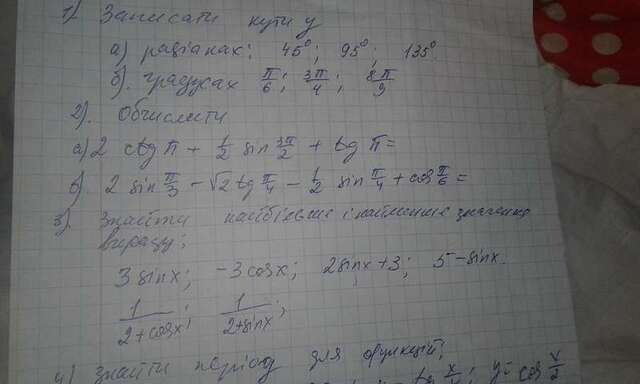 1) Записати кути у
а) радіанах: 45°; 95°; 135°.
б). градусах π/6; 3π/4; 8π/9
2). Обчислити
а) 2 ctg π + 1/2 sin 3π/2 + tg π =
б). 2 sin π/3 - √2 tg π/4 - 1/2 sin π/4 + cos π/6 =
3). Знайти найбільше і найменше значення
виразу:
3 sinx; -3 cosx; 2sinx + 3; 5 - sinx.
1/(2+cosx); 1/(2+sinx);
4) Знайти період для функцій:
y = cos x/2